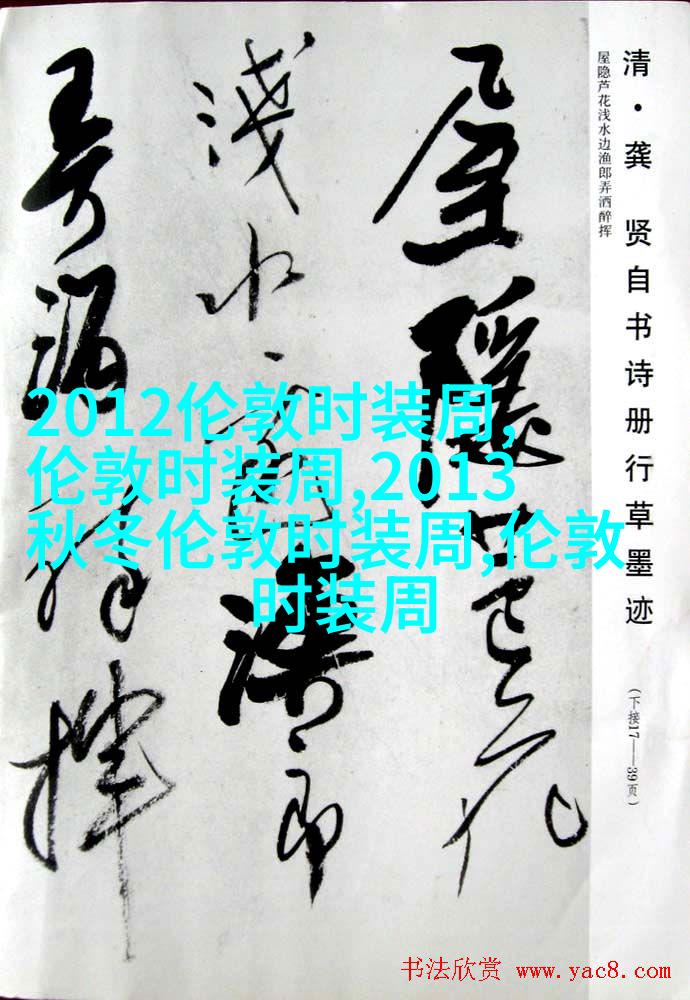 清·龚 贤自书诗册行草墨迹
(下接17——39页)
屋隐芦花浅水边渔郎弄洒醉挥
屋隱芦花
淺水邊漁郎
弄酒醉揮
2012伦敦时装周,
伦敦时装周,2013
秋冬伦敦时装周,伦敦
时装周
书法欣赏 www.yac8.com